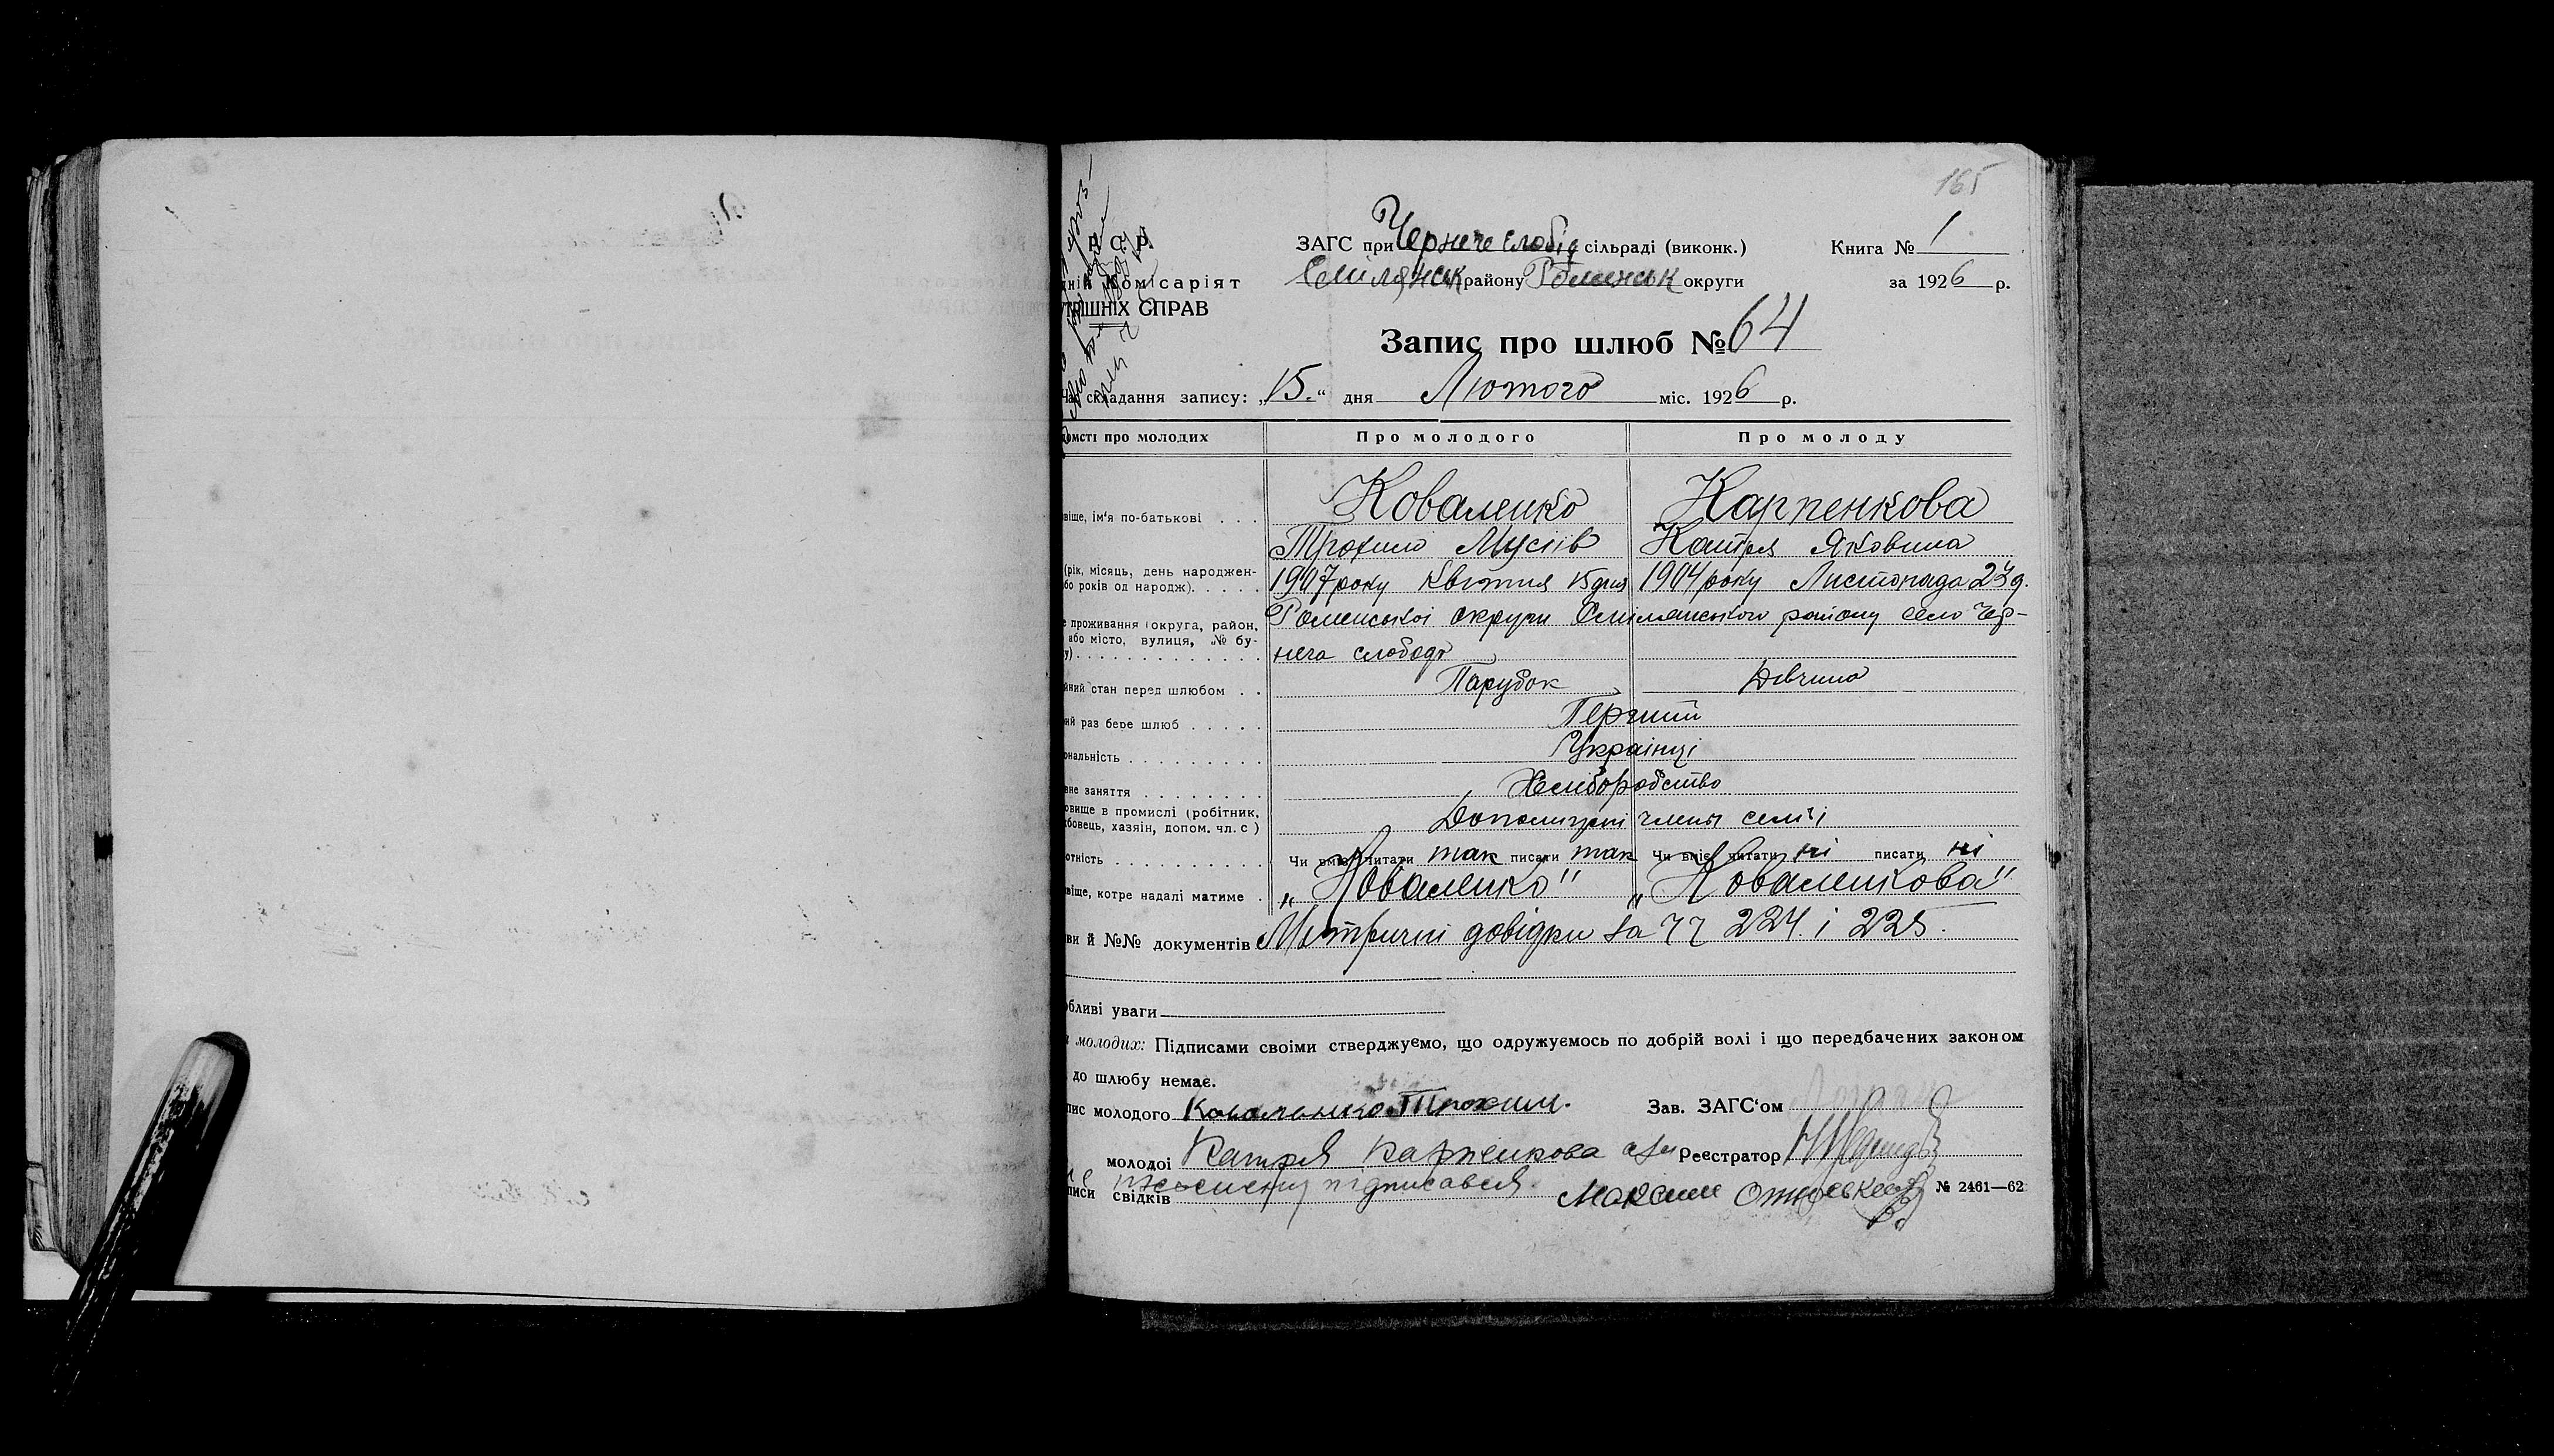 165
Р. С. Р.
ЗАГС при Чернече Слобід сільраді (виконк.) Книга № 1
дній Комісаріят Смілянськ району Роменськ округи за 1926 р.
УТРІШНІХ СПРАВ
Запис про шлюб № 64
Час складання запису: „15.“ дня Лютого міс. 1926 р.
омсті про молодих Про молодого Про молоду
звіще, ім'я по-батькові . . . Коваленко Карпенкова
Трохим Мусіїв Катря Яковина
(рік, місяць, день народжен- 1907 року Квітня 15 дня 1904 року Листопада 23 д.
бо років од народж). . . . .
е проживання (округа, район, Роменської округи Смілянського району село Чер-
або місто, вулиця, № бу-
у) . . . . . . . . . . . . . неча слобода
йний стан перед шлюбом . . Парубок Дівчина
ий раз бере шлюб . . . . . Перший
ональність . . . . . . . . . Українці
вне заняття . . . . . . . . Хліборобство
овище в промислі (робітник,
бовець, хазяін, допом. чл. с ) Допомічні члени сем'ї
отність . . . . . . . . . . Чи вміє читати так писати так Чи вміє читати ні писати ні
звіще, котре надалі матиме . „Коваленко" „Коваленкова"
ви й №№ документів Метричні довідки за 224 і 225.
обливі уваги
молодих: Підписами своіми стверджуємо, що одружуємось по добрій волі і що передбачених законом
до шлюбу немає.
пис молодого Коваленко Трохим. Зав. ЗАГС‘ом
молодоі Катря Карпенкова Реєстратор
писи свідків підписався. Максим № 2461—62